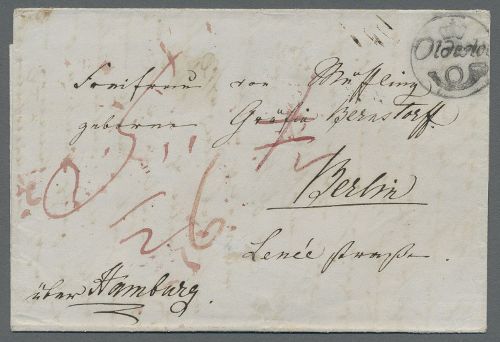 Oldeslo
Freifrau von Müffling
geborne Gräfin Bernstorff.
Berlin
Lenée straße.
über Hamburg.
26